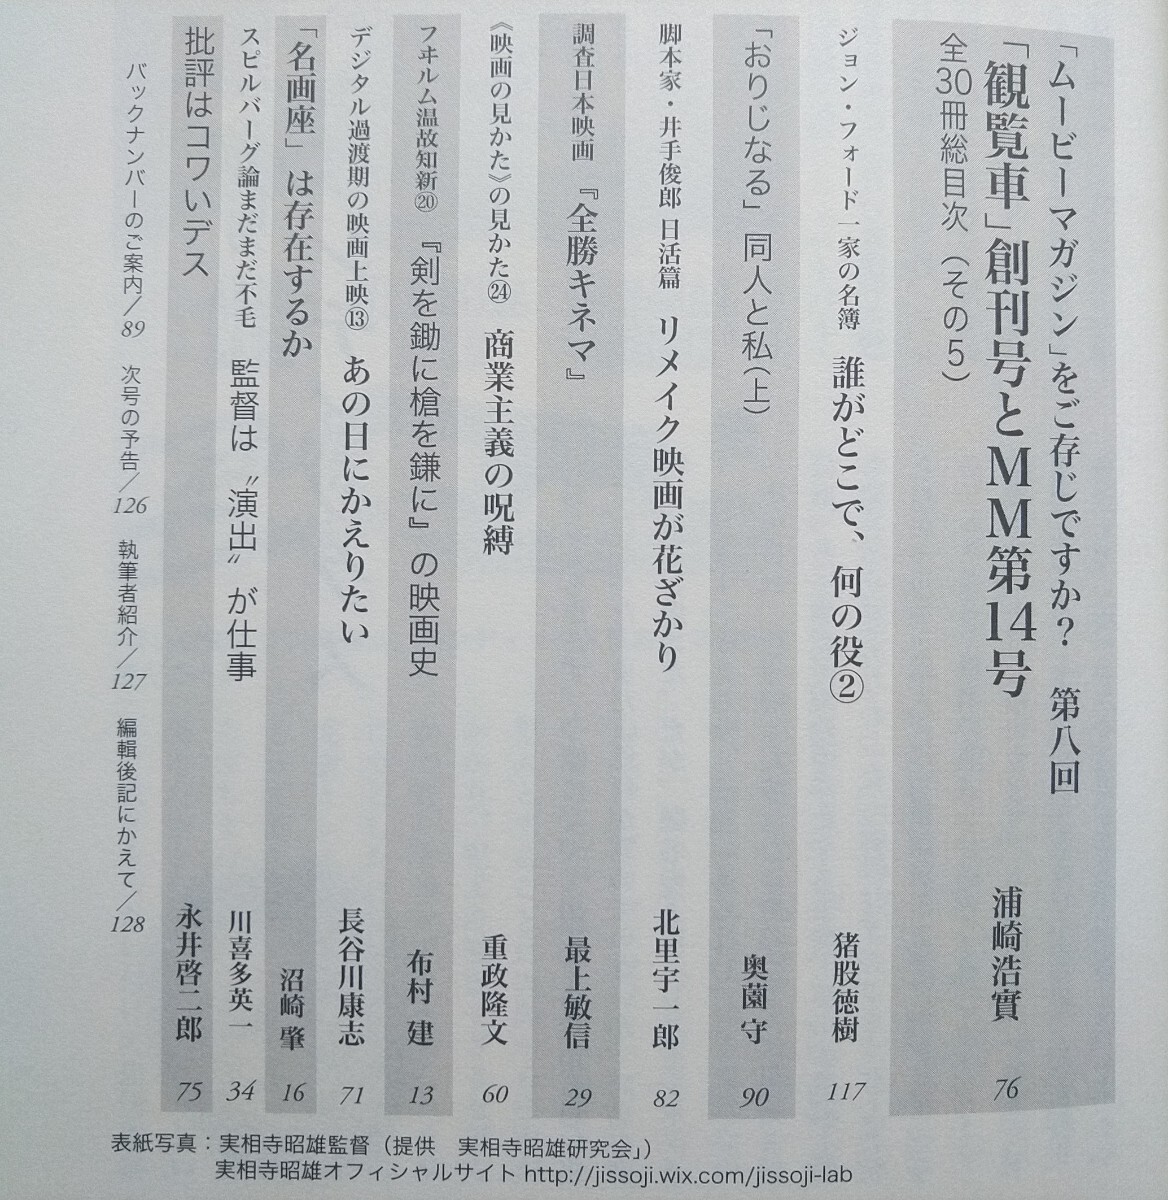 「ムービーマガジン」をご存じですか？　第八回
「観覧車」創刊号とＭＭ第14号
全30冊総目次（その５）
浦崎浩實
76
ジョン・フォード一家の名簿　誰がどこで、何の役②
猪股徳樹
117
「おりじなる」同人と私（上）
奥薗 守
90
脚本家・井手俊郎 日活篇　リメイク映画が花ざかり
北里宇一郎
82
調査日本映画　『全勝キネマ』
最上敏信
29
《映画の見かた》の見かた㉔　商業主義の呪縛
重政隆文
60
フヰルム温故知新⑳　『剣を鋤に槍を鎌に』の映画史
布村 建
13
デジタル過渡期の映画上映⑬　あの日にかえりたい
長谷川康志
71
「名画座」は存在するか
沼崎 肇
16
スピルバーグ論まだまだ不毛　監督は〝演出〟が仕事
川喜多英一
34
批評はコワいデス
永井啓二郎
75
バックナンバーのご案内／89　次号の予告／126　執筆者紹介／127　編輯後記にかえて／128
表紙写真：実相寺昭雄監督（提供　実相寺昭雄研究会」）
実相寺昭雄オフィシャルサイト http://jissoji.wix.com/jissoji-lab